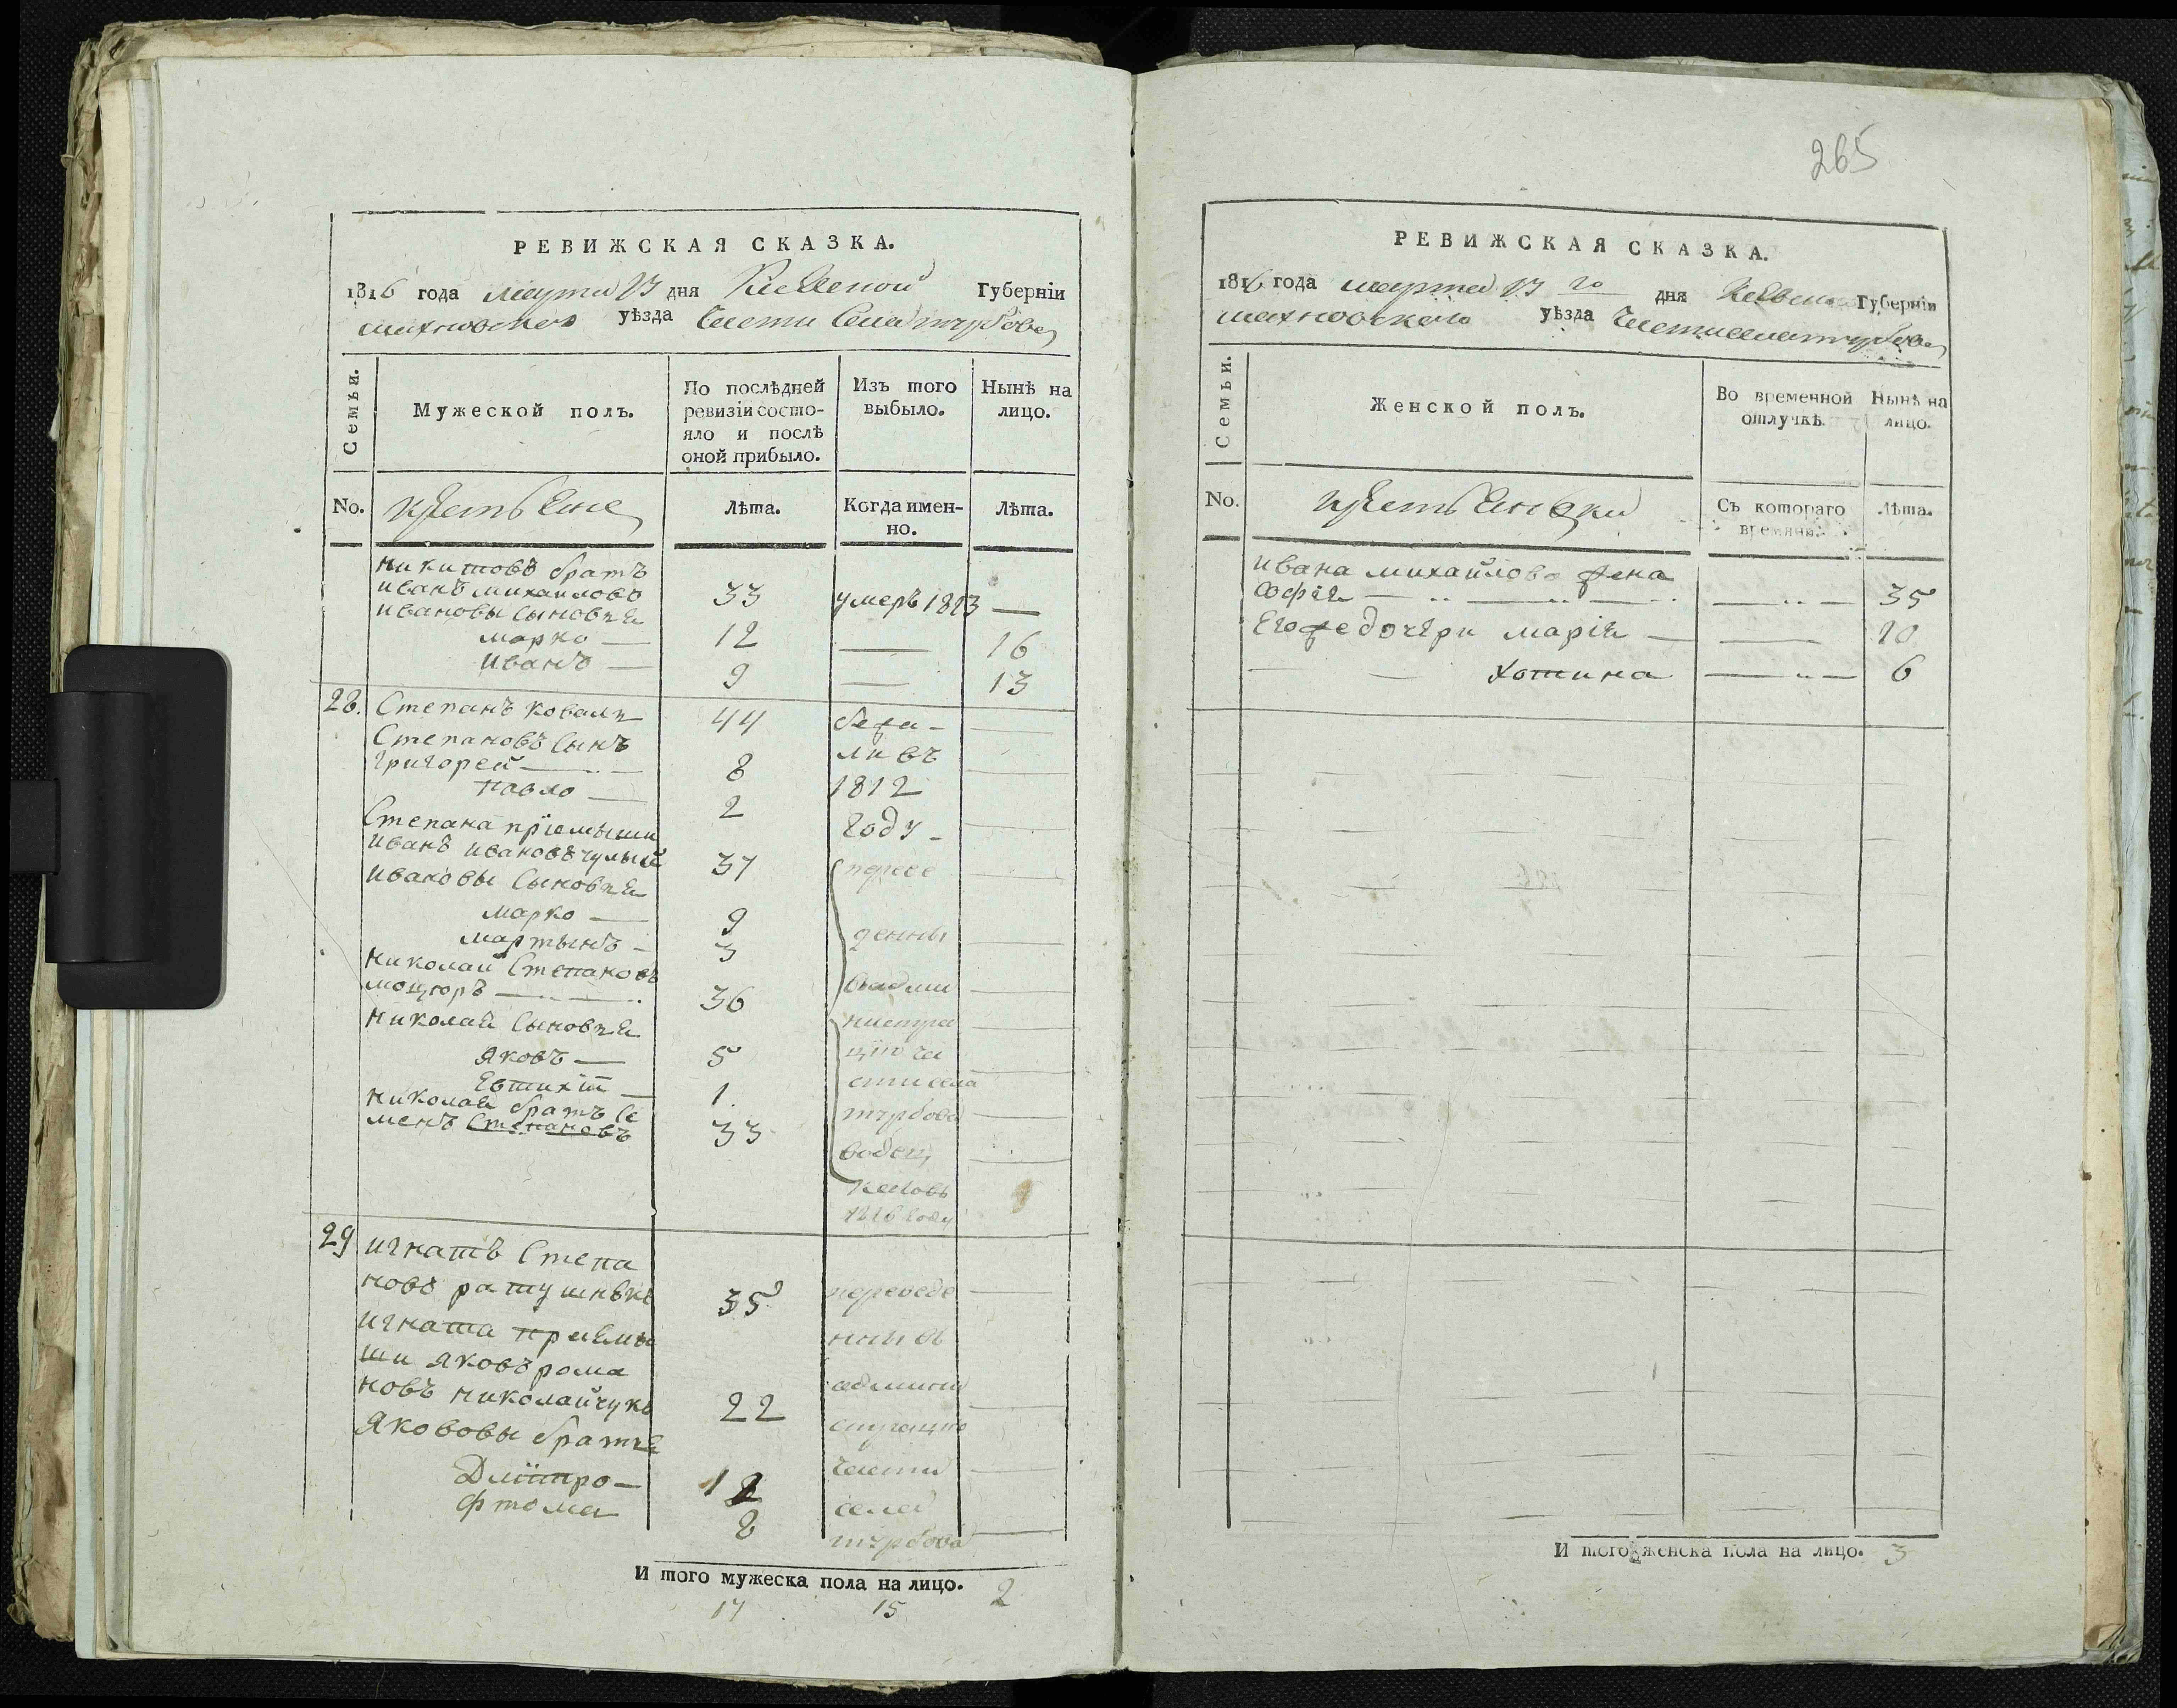 РЕВИЖСКАЯ СКАЗКА.
1816 года марта 13 дня Киевской Губерніи
махновского уѣзда Части Села турбова
Семьи.
Мужеской полъ.
По послѣдней
ревизіи состо-
яло и послѣ
оной прибыло.
Изъ того
выбыло.
Нынѣ на
лицо.
No.
крестьяне
Лѣта.
Когда имен-
но.
Лѣта.
никитовъ братъ
иванъ михайловъ 33 умеръ 1813 —
ивановы Сыновья
марко — 12 — 16
иванъ — 9 — 13
28. Степанъ коваль 44 бежа-
Степановъ Сынъ
григорей — 8 ли въ
павло — 2 1812
Степана пріемыши году -
иванъ ивановъ 37
ивановы Сыновья
марко — 9
мартынъ - 3
николай Степановъ
36
николая Сыновья
яковъ — 5
Евтихій — 1.
николая братъ Се
менъ Степановъ 33
турбова
1816 году
29 игнатъ Степа
новъ ратушнякъ 35 переведе
игната приемы
ши яковъ рома
новъ николайчукъ 22
яковы братья
Дмітро — 12 части
фтома 8 села
турбова
И того мужеска пола на лицо. 2
17 15
265
РЕВИЖСКАЯ СКАЗКА.
1816 года марта 13 го дня Киевской Губерніи
махновского уѣзда Части села турбова
Семьи.
Женской полъ.
Во временной
отлучкѣ.
Нынѣ на
лицо.
No.
крестьянки
Съ котораго
времяни.
Лѣта.
ивана михайлова жена
софія — 35
Егоже дочери марія — 10
— хотина — 6
И того женска пола на лицо. 3